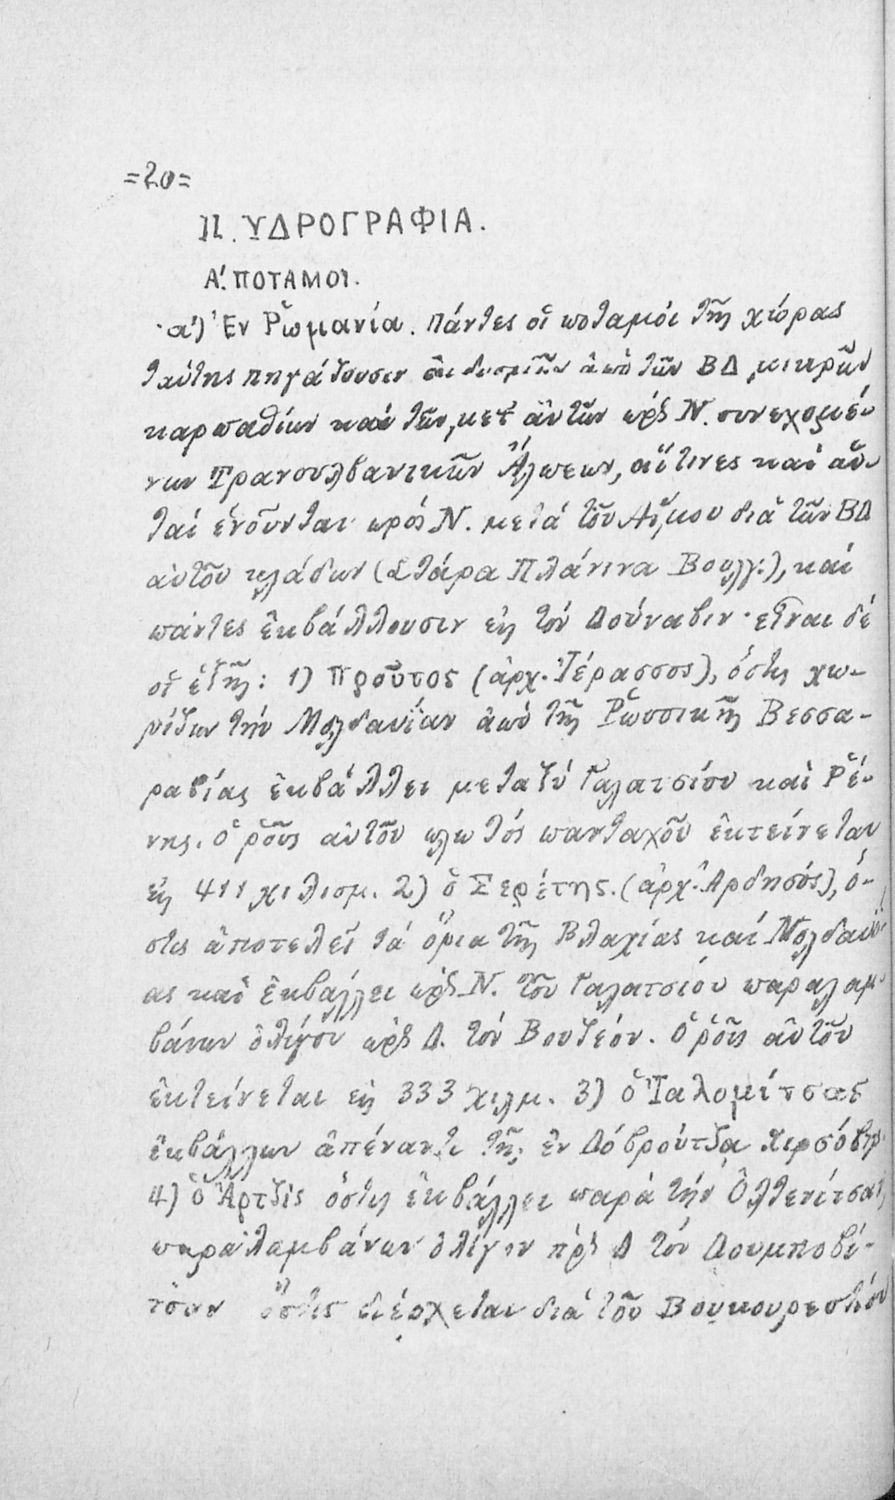 =20=
II. ΥΔΡΟΓΡΑΦΙΑ.
Α'. ΠΟΤΑΜΟΙ.
α') Ἐν Ῥωμανίᾳ. Πάντες οἱ ποταμοὶ τῆς χώρας
ταύτης πηγάζουσιν ἐκ δυσμῶν ἀπὸ τῶν ΒΔ μικρῶν
καρπαθίων καὶ τῶν μετ' αὐτῶν πρὸς Ν. συνεχομέ-
νων Τρανσυλβανικῶν Ἄλπεων, αἵτινες καὶ αὐ-
ταὶ ἑνοῦνται πρὸς Ν. μετὰ τοῦ Αἵμου διὰ τῶν ΒΔ
αὐτοῦ κλάδων (Στάρα Πλάνινα Βουλγ.), καὶ
πάντες ἐκβάλλουσιν εἰς τὸν Δούναβιν· εἶναι δὲ
οἱ ἑξῆς: 1) Προῦτος (ἀρχ. Ἱέρασσος), ὅστις χω-
ρίζων τὴν Μολδαυΐαν ἀπὸ τῆς Ῥωσσικῆς Βεσσα-
ραβίας ἐκβάλλει μεταξὺ Γαλατσίου καὶ Ῥέ-
νης. Ὁ ῥοῦς αὐτοῦ πλωτὸς πανταχοῦ ἐκτείνεται
εἰς 411 χιλιομ. 2) ὁ Σερέτης. (ἀρχ. Ἀρδησός), ὅ-
στις ἀποτελεῖ τὰ ὅρια τῆς Βλαχίας καὶ Μολδαυΐ-
ας καὶ ἐκβάλλει πρὸς Ν. τοῦ Γαλατσίου παραλαμ-
βάνων ὀλίγον πρὸς Δ. τὸν Βουζέον. Ὁ ῥοῦς αὐτοῦ
ἐκτείνεται εἰς 333 χιλμ. 3) ὁ Ἰαλομίτσας
ἐκβάλλων ἀπέναντι τῆς ἐν Δόβρούτζᾳ Χιρσόβης
4) ὁ Ἀρτζὶς ὅστις ἐκβάλλει παρὰ τὴν Ὀλτενίτσαν
παραλαμβάνων ὀλίγον πρὸς Δ τὸν Δουμποβί-
τσαν ὅστις διέρχεται διὰ τοῦ Βουκουρεστίου